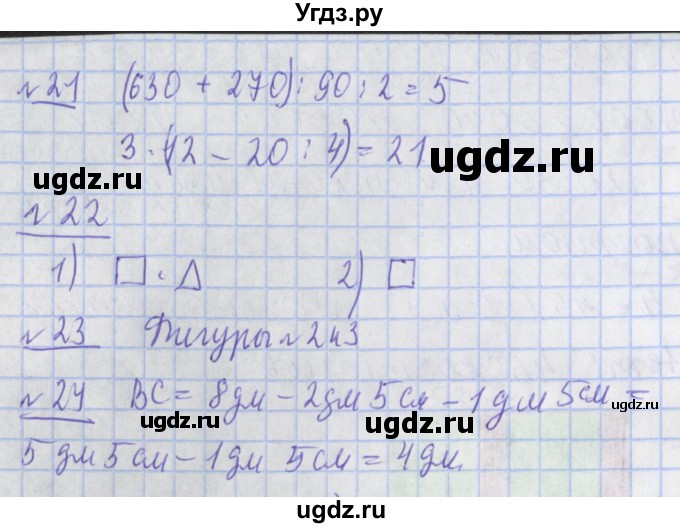 Угдз.ру
№21 (630 + 270) : 90 : 2 = 5
3 · (12 – 20 : 4) = 21
ugdz.ru
ugdz.ru
№22
ugdz.ru
1) □ · △ 2) □
ugdz.ru
ugdz.ru
№23 Фигуры №2 и 3
№24 BC = 8 дм – 2 дм 5 см – 1 дм 5 см =
ugdz.ru
ugdz.ru
ugdz.ru
5 дм 5 см – 1 дм 5 см = 4 дм.
ugdz.ru
ugdz.ru